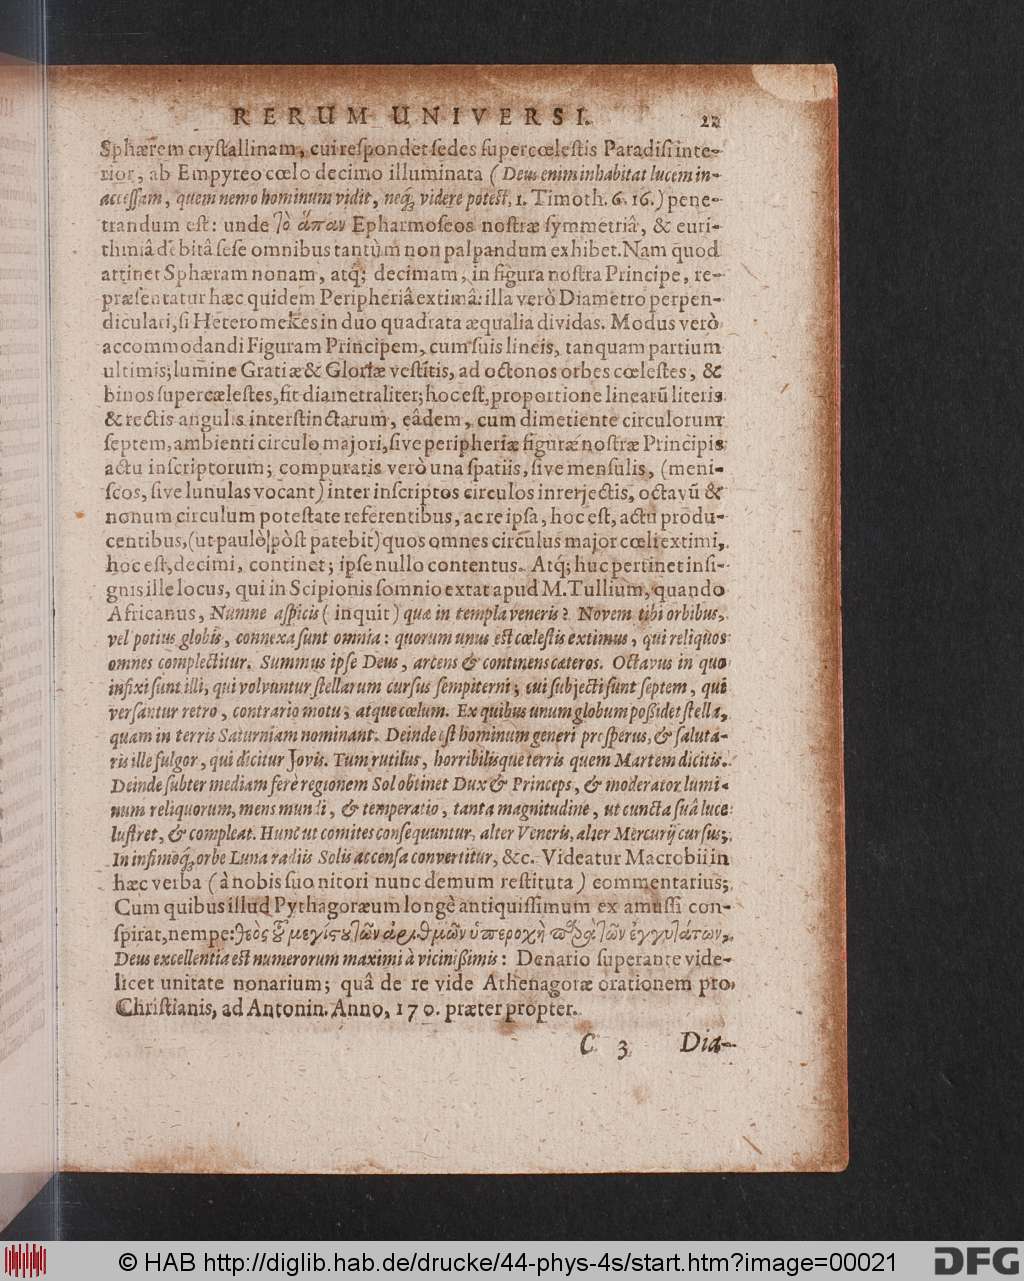 RERUM UNIVERSI. 21
Sphærem cryſtallinam, cui reſpondet ſedes ſupercœleſtis Paradiſi inte-
rior, ab Empyreo cœlo decimo illuminata (Deus enim inhabitat lucem in-
acceſſam, quem nemo hominum vidit, neq; videre poteſt, 1. Timoth. 6. 16.) pene-
trandum eſt: unde τὸ ἅπαν Epharmoſeos noſtræ ſymmetriâ, & euri-
thmiâ debitâ ſeſe omnibus tantùm non palpandum exhibet. Nam quod
attinet Sphæram nonam, atq; decimam, in figura noſtra Principe, re-
præſentatur hæc quidem Peripheriâ extimâ: illa verò Diametro perpen-
diculari, ſi Heteromekes in duo quadrata æqualia dividas. Modus verò
accommodandi Figuram Principem, cum ſuis lineis, tanquam partium
ultimis; lumine Gratiæ & Gloriæ veſtitis, ad octonos orbes cœleſtes, &
binos ſupercæleſtes, fit diametraliter; hoc eſt, proportione linearū literis
& rectis angulis interſtinctarum, eâdem, cum dimetiente circulorum
ſeptem, ambienti circulo majori, ſive peripheriæ figuræ noſtræ Principis
actu inſcriptorum; computatis verò una ſpatiis, ſive menſulis, (meni-
ſcos, ſive lunulas vocant) inter inſcriptos circulos interjectis, octavū &
nonum circulum poteſtate referentibus, ac re ipſa, hoc eſt, actu produ-
centibus, (ut paulò pòſt patebit) quos omnes circulus major cœli extimi,
hoc eſt, decimi, continet; ipſe nullo contentus. Atq; huc pertinet inſi-
gnis ille locus, qui in Scipionis ſomnio extat apud M. Tullium, quando
Africanus, Numne aſpicis (inquit) quæ in templa veneris? Novem tibi orbibus,
vel potius globis, connexa ſunt omnia: quorum unus eſt cœleſtis extimus, qui reliquos
omnes complectitur. Summus ipſe Deus, arcens & continens cæteros. Octavus in quo
infixi ſunt illi, qui volvuntur ſtellarum curſus ſempiterni; cui ſubjecti ſunt ſeptem, qui
verſantur retro, contrario motu; atque cœlum. Ex quibus unum globum poßidet ſtella,
quam in terris Saturniam nominant. Deinde eſt hominum generi proſperus, & ſaluta-
ris ille fulgor, qui dicitur Jovis. Tum rutilus, horribilisque terris quem Martem dicitis.
Deinde ſubter mediam ferè regionem Sol obtinet Dux & Princeps, & moderator lumi-
num reliquorum, mens mundi, & temperatio, tanta magnitudine, ut cuncta ſuâ luce
luſtret, & compleat. Hunc ut comites conſequuntur, alter Veneris, alter Mercurij curſus;
In infimoq; orbe Luna radiis Solis accenſa convertitur, &c. Videatur Macrobii in
hæc verba (à nobis ſuo nitori nunc demum reſtituta) commentarius;
Cum quibus illud Pythagoræum longè antiquiſſimum ex amuſſi con-
ſpirat, nempe: θεὸς ὃ μεγίςου τῶν ἀριθμῶν ὑπεροχὴ παρὰ τῶν ἐγγυτάτων,
Deus excellentia eſt numerorum maximi à vicinißimis: Denario ſuperante vide-
licet unitate nonarium; quâ de re vide Athenagoræ orationem pro
Chriſtianis, ad Antonin. Anno, 170. præter propter.
C 3 Dia-
© HAB http://diglib.hab.de/drucke/44-phys-4s/start.htm?image=00021 DFG